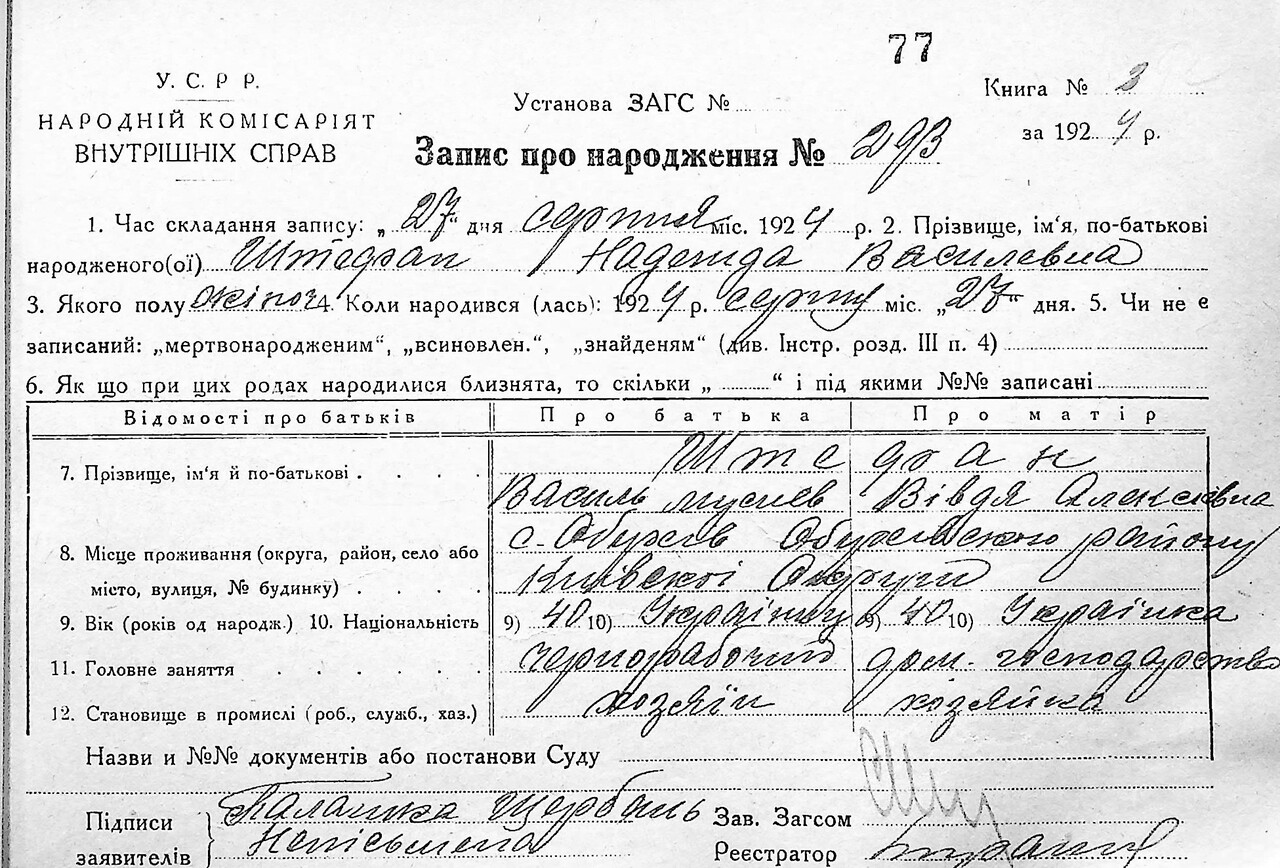 77
У. С. Р Р.
НАРОДНІЙ КОМІСАРІЯТ
ВНУТРІШНІХ СПРАВ
Установа ЗАГС №
Книга № 3
за 1924 р.
Запис про народження № 293
1. Час складання запису: „27“ дня серпня міс. 1924 р. 2. Прізвище, ім'я, по-батькові
народженого(ої) Штефан Надежда Василевна
3. Якого полу жіноч 4. Коли народився (лась): 1924 р. серпня міс. „27“ дня. 5. Чи не є
записаний: „мертвонародженим“, „всиновлен.“, „знайденям“ (див. Інстр. розд. III п. 4)
6. Як що при цих родах народилися близнята, то скільки „ “ і під якими №№ записані
Відомості про батьків Про батька Про матір
7. Прізвище, ім'я й по-батькові . . . . Штефан
Василь Мусиев Вівдя Алексієвна
8. Місце проживання (округа, район, село або
місто, вулиця, № будинку) . . . .
с. Обухів Обухівского району
Київскої Округи
9. Вік (років од народж.) 10. Національність 9) 40 10) Українец 9) 40 10) Українка
11. Головне заняття . . . . . чернорабочий дом. господарство
12. Становище в промислі (роб., служб., хаз.) хозяїн хозяйка
Назви и №№ документів або постанови Суду
Підписи
заявителів
Палашка Щербань
Неписьмена
Зав. Загсом
Реєстратор